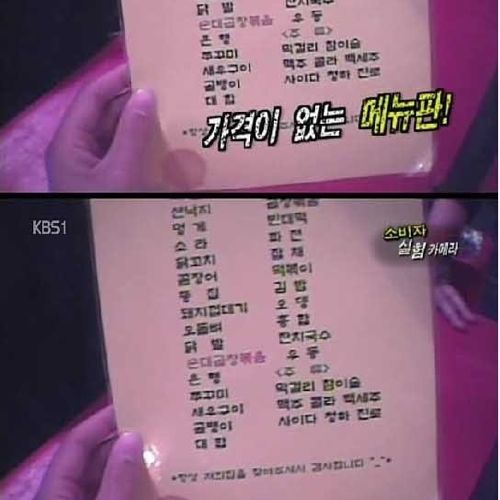 닭 발
순대곱창볶음
은 행
쭈꾸미
새우구이
골뱅이
대 합
잔치국수
우 동
<주 류>
막걸리 참이슬
맥주 콜라 백세주
사이다 청하 진로
*항상
가격이 없는 메뉴판!
KBS1
소비자
실험 카메라
산낙지
멍 게
소 라
닭꼬치
곰장어
똥 집
돼지껍데기
오돌뼈
닭 발
순대곱창볶음
은 행
쭈꾸미
새우구이
골뱅이
대 합
곱창볶음
빈대떡
파 전
잡 채
떡볶이
김 밥
오 뎅
홍 합
잔치국수
우 동
<주 류>
막걸리 참이슬
맥주 콜라 백세주
사이다 청하 진로
*항상 저희집을 찾아주셔서 감사합니다 ^_^*